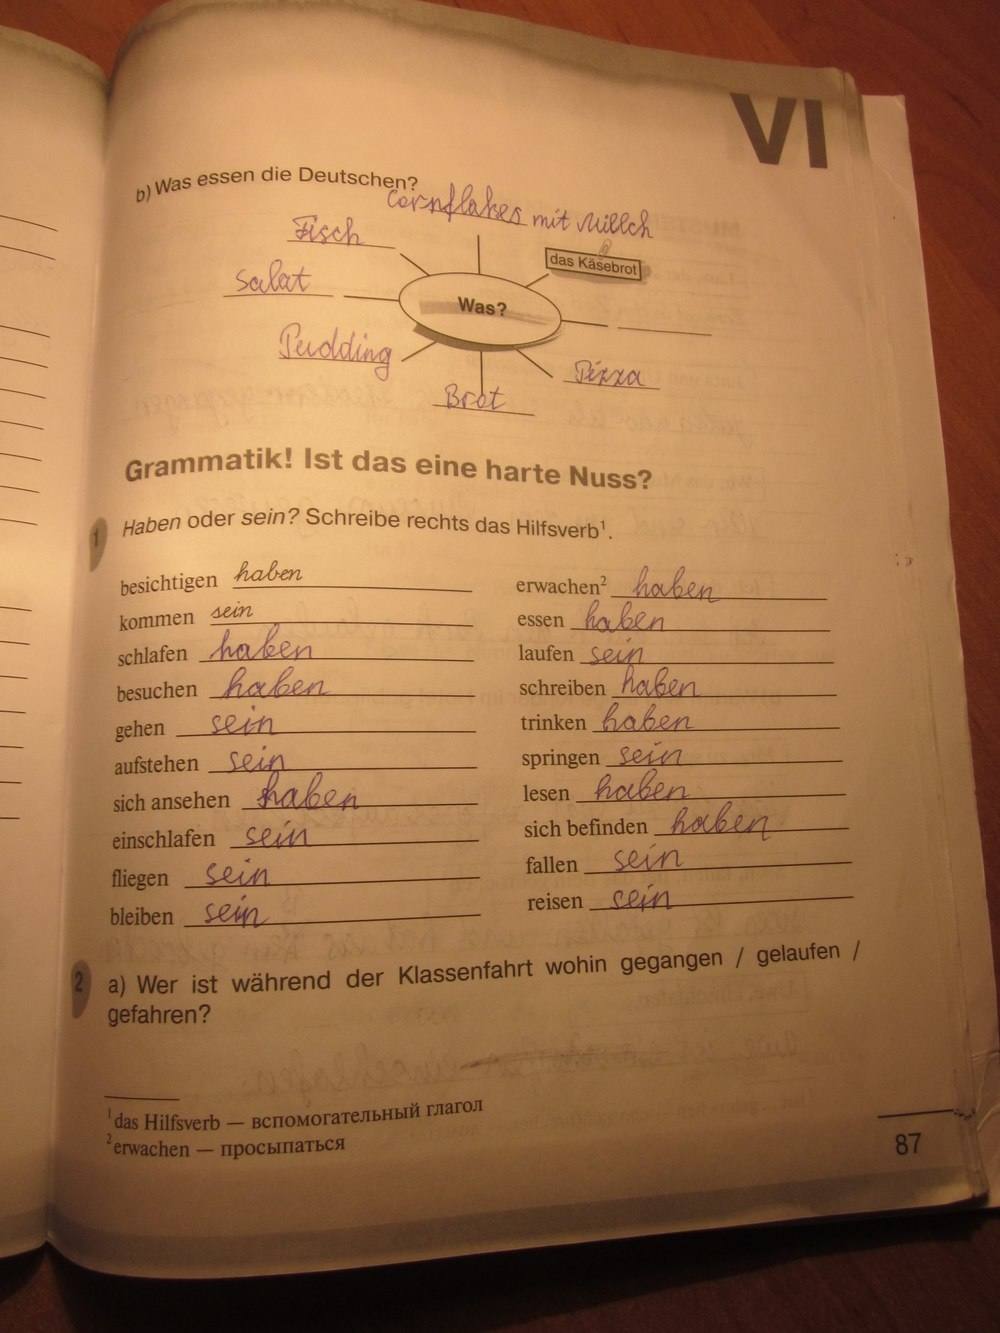 VI
b) Was essen die Deutschen?
Cornflakes mit Millch
Fisch
das Käsebrot
Salat
Was?
Pudding
Pizza
Brot
Grammatik! Ist das eine harte Nuss?
1 Haben oder sein? Schreibe rechts das Hilfsverb¹.
besichtigen haben
kommen sein
schlafen haben
besuchen haben
gehen sein
aufstehen sein
sich ansehen haben
einschlafen sein
fliegen sein
bleiben sein
erwachen² haben
essen haben
laufen sein
schreiben haben
trinken haben
springen sein
lesen haben
sich befinden haben
fallen sein
reisen sein
2 a) Wer ist während der Klassenfahrt wohin gegangen / gelaufen /
gefahren?
¹ das Hilfsverb — вспомогательный глагол
² erwachen — просыпаться
87